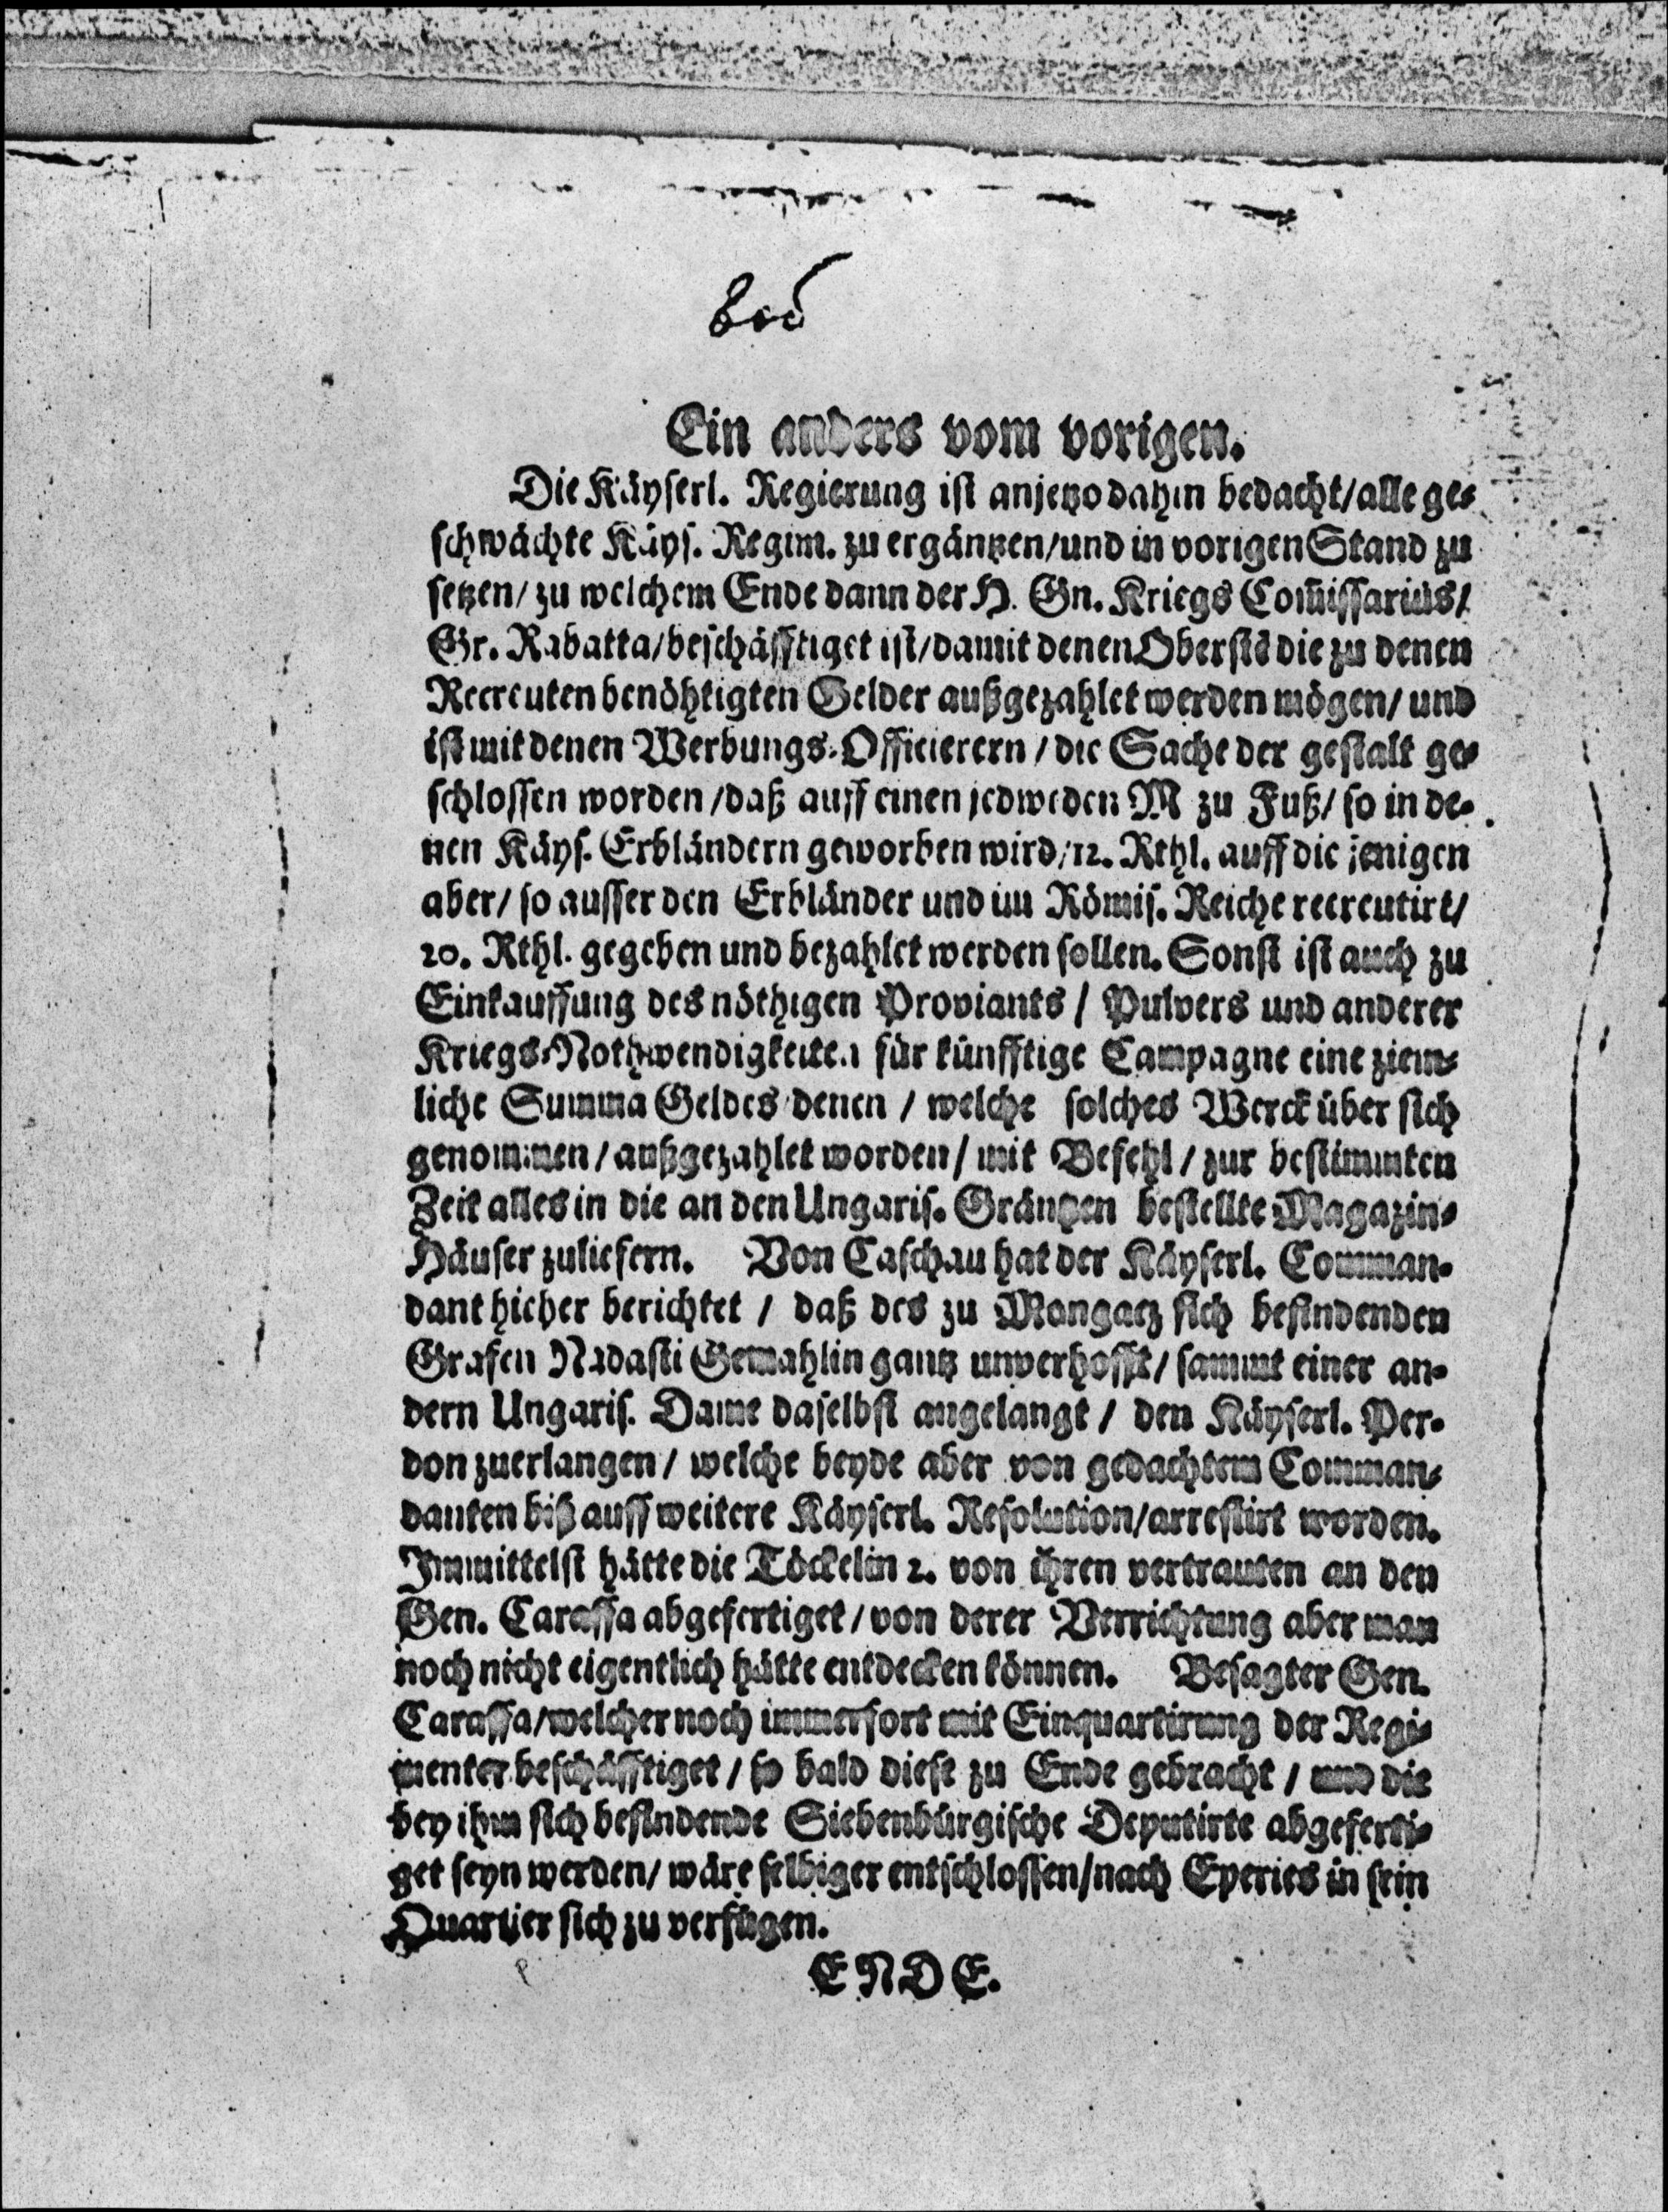 Ein anders vom vorigen.
Die Käyserl. Regierung ist anjetzo dahin bedacht/ alle ge-
schwächte Käys. Regim. zu ergäntzen/ und in vorigen Stand zu
setzen/ zu welchem Ende dann der H. Gn. Kriegs Com̃issarius/
Gr. Rabatta/ beschäfftiget ist/ damit denen Oberstẽ die zu denen
Recreuten benöhtigten Gelder außgezahlet werden mögen/ und
ist mit denen Werbungs-Officierern / die Sache der gestalt ge-
schlossen worden / daß auff einen jedweden M zu Fuß/ so in de-
nen Käys. Erbländern geworben wird/ 12. Rthl. auff die jenigen
aber/ so ausser den Erbländer und im Römis. Reiche recreutirt/
20. Rthl. gegeben und bezahlet werden sollen. Sonst ist auch zu
Einkauffung des nöthigen Proviants / Pulvers und anderer
Kriegs-Nothwendigkeiten für künfftige Campagne eine ziem-
liche Summa Geldes denen / welche solches Werck über sich
genommen / außgezahlet worden / mit Befehl / zur bestimmten
Zeit alles in die an den Ungaris. Gräntzen bestellte Magazin-
Häuser zuliefern. Von Caschau hat der Käyserl. Comman-
dant hieher berichtet / daß des zu Mongatz sich befindenden
Grafen Nadasti Gemahlin gantz unverhofft/ sammt einer an-
dern Ungaris. Dame daselbst angelangt / den Käyserl. Per-
don zuerlangen / welche beyde aber von gedachtem Comman-
danten biß auff weitere Käyserl. Resolution/ arrestirt worden.
Immittelst hätte die Töckelin 2. von ihren vertrauten an den
Gen. Caraffa abgefertiget / von derer Verrichtung aber man
noch nicht eigentlich hätte entdecken können. Besagter Gen.
Caraffa/ welcher noch immerfort mit Einquartirung der Regi-
menter beschäfftiget / so bald diese zu Ende gebracht / und die
bey ihm sich befindende Siebenbürgische Deputirte abgeferti-
get seyn werden/ wäre selbiger entschlossen/ nach Eperies in sein
Quartier sich zu verfügen.
ENDE.